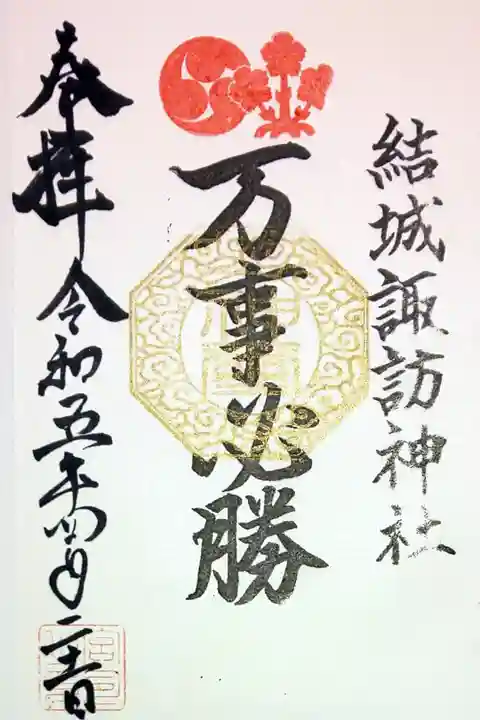 結城諏訪神社
万事必勝
奉拝 令和五年四月